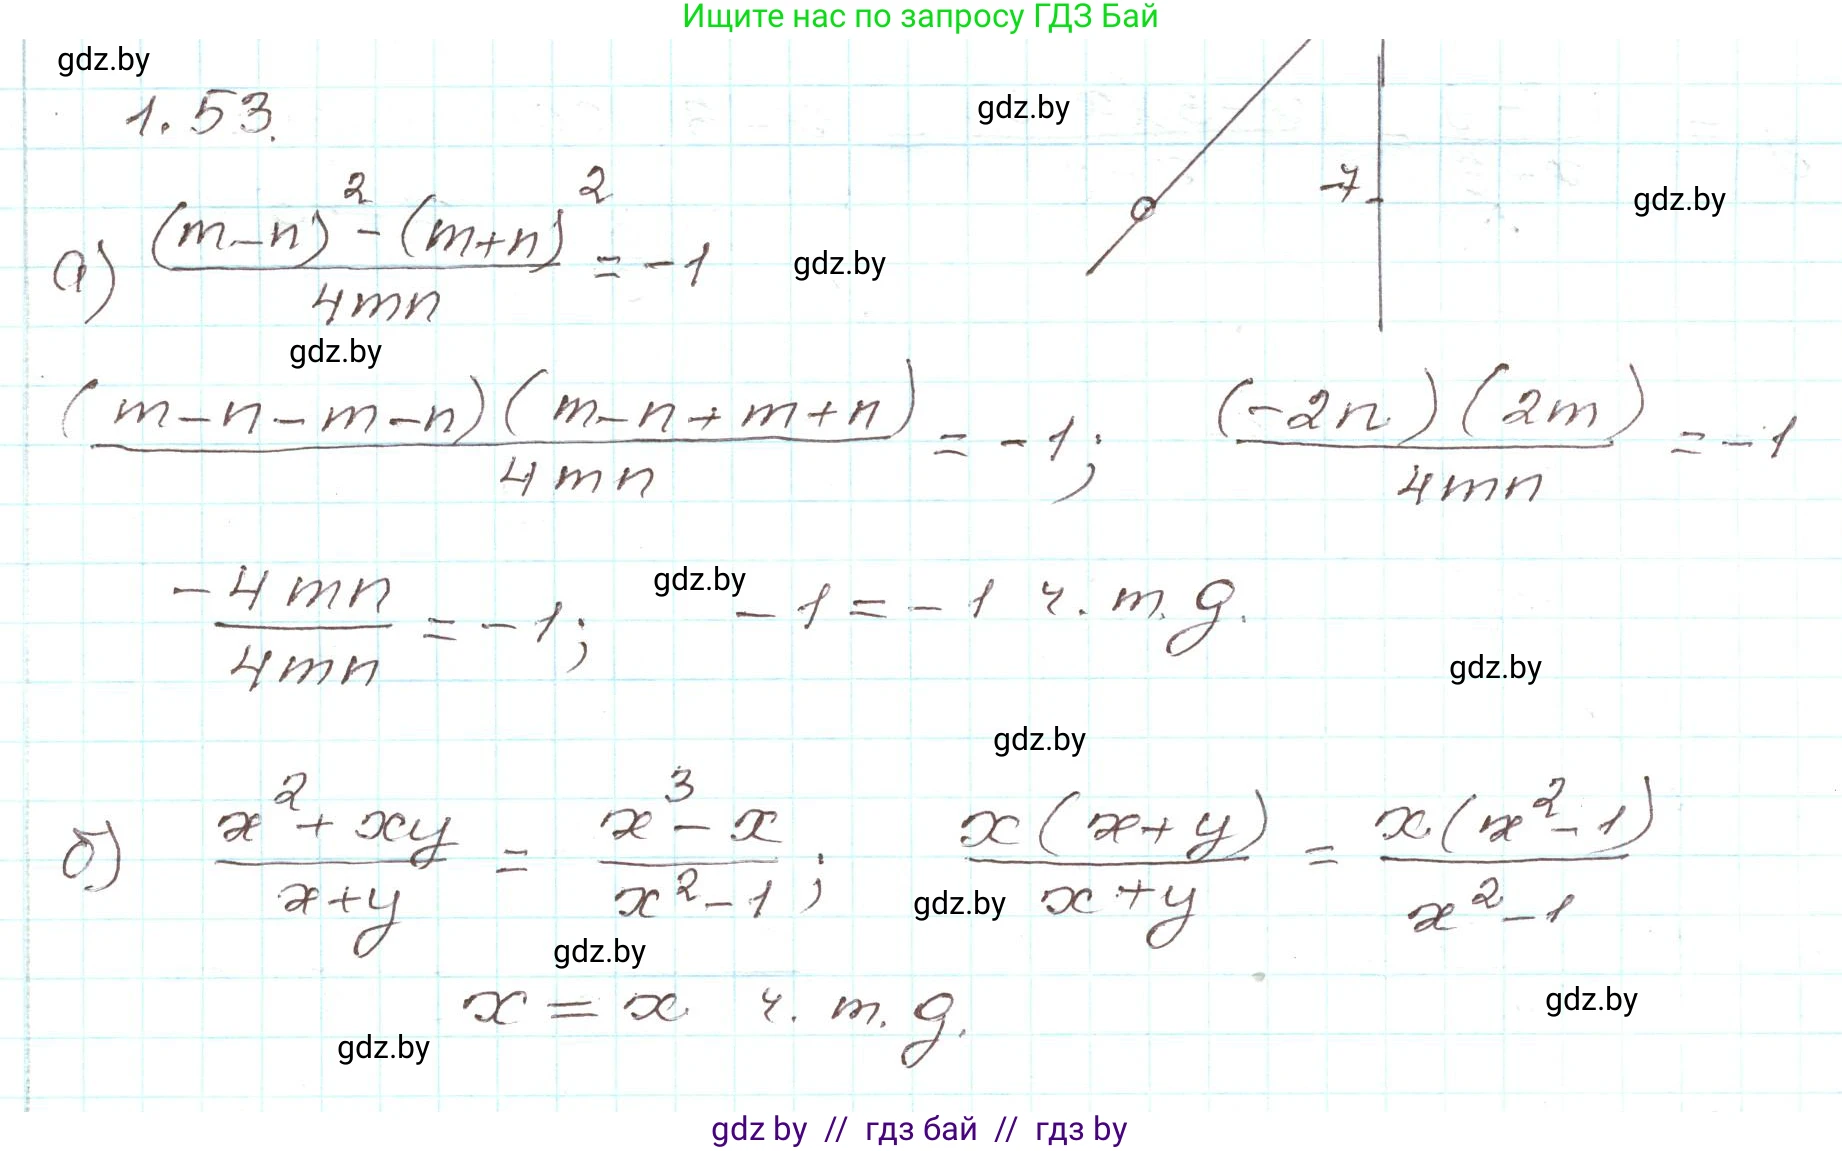 Ищите нас по запросу ГДЗ Бай
gdz.by
1.53.
gdz.by
-7
gdz.by
а) ((m-n)² - (m+n)²)/(4mn) = -1
gdz.by
gdz.by
((m-n-m-n)(m-n+m+n))/(4mn) = -1; ((-2n)(2m))/(4mn) = -1
(-4mn)/(4mn) = -1; gdz.by -1 = -1 ч.т.д.
gdz.by
gdz.by
б) (x²+xy)/(x+y) = (x³-x)/(x²-1); (x(x+y))/(x+y) = (x(x²-1))/(x²-1)
gdz.by
gdz.by
x = x ч.т.д.
gdz.by
gdz.by
gdz by // гдз бай // гдз by